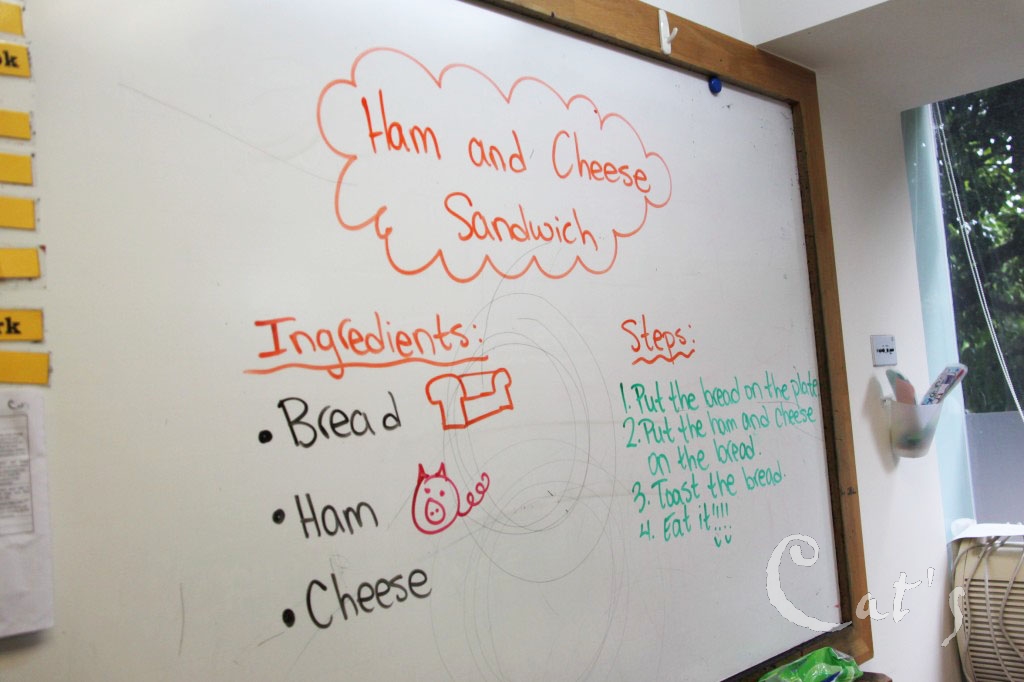 Ham and Cheese
Sandwich
Ingredients:
• Bread
• Ham
• Cheese
Steps:
1. Put the bread on the plate
2. Put the ham and cheese
on the bread.
3. Toast the bread.
4. Eat it!!!!
Cat's